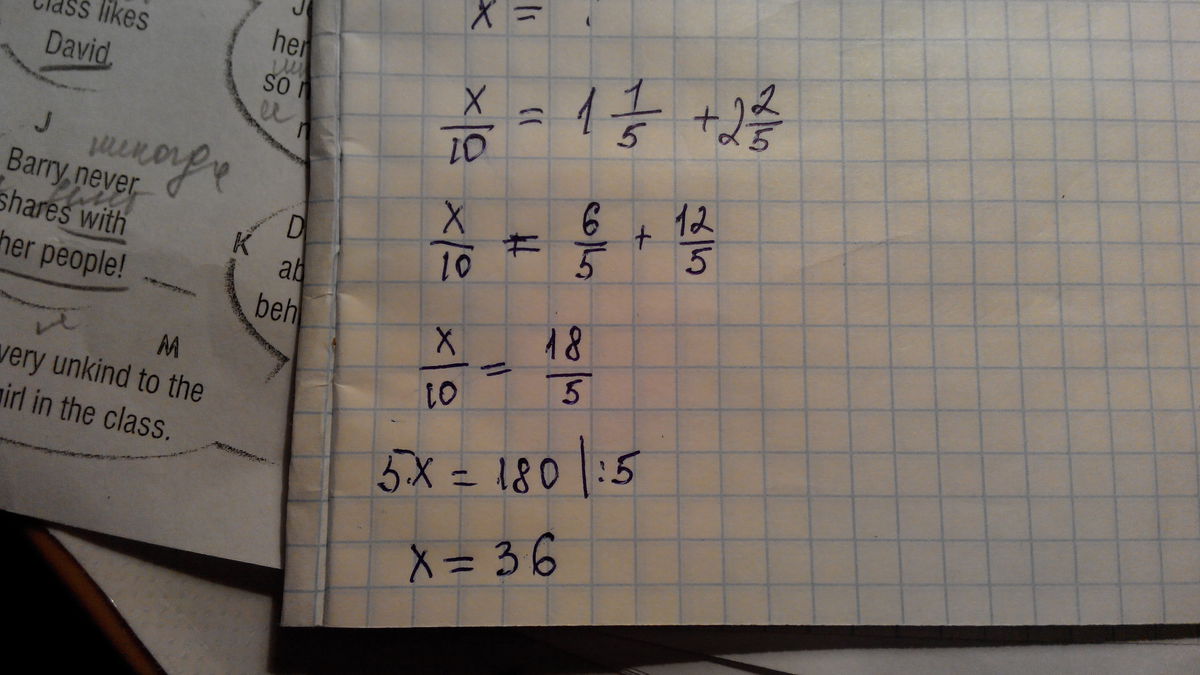 class likes
David
J
Barry never
никогда
shares with
her people!
M
very unkind to the
girl in the class.
her
so
K
D
ab
beh
x =
x/10 = 1 1/5 + 2 2/5
x/10 = 6/5 + 12/5
x/10 = 18/5
5x = 180 |:5
x = 36